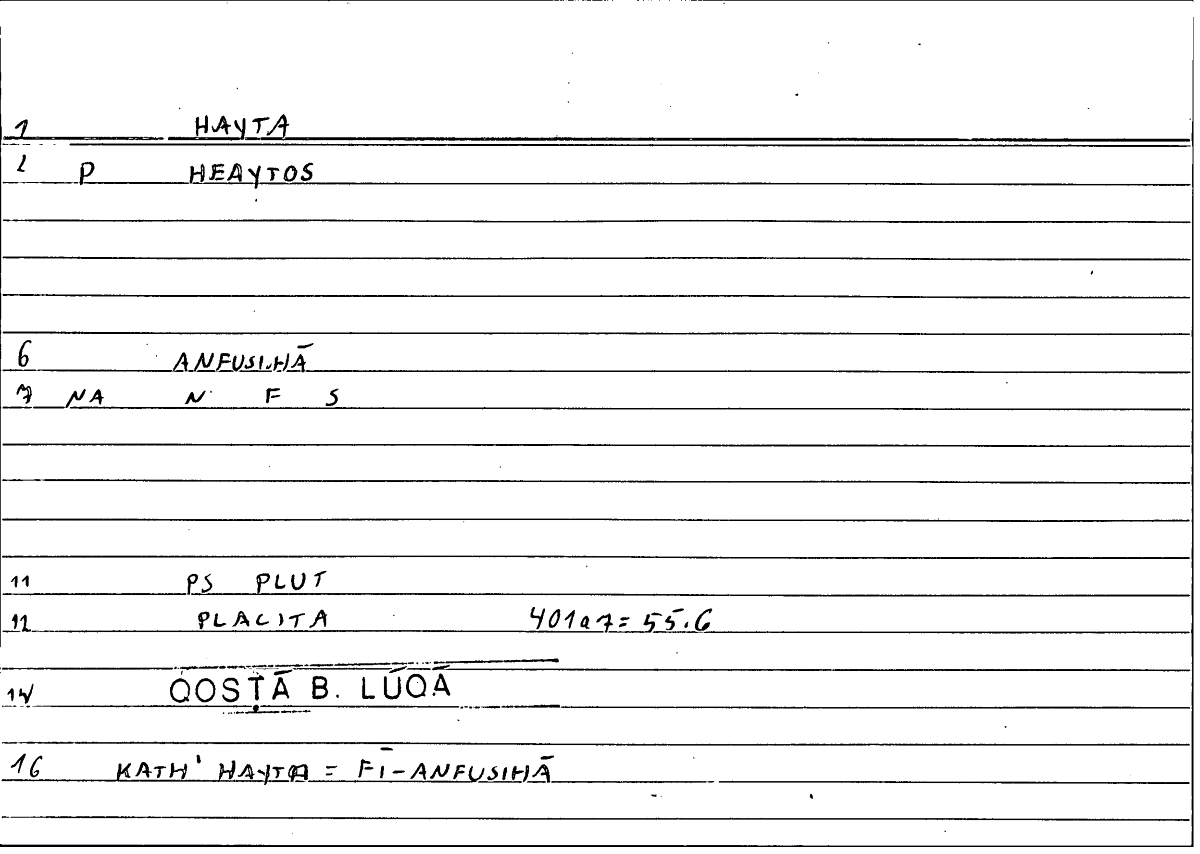 1 HAYTA
2 P HEAYTOS
6 ANFUSIHĀ
7 NA N F S
11 PS PLUT
12 PLACITA 401a7=55.6
14 QOSṬĀ B. LŪQĀ
16 KATH' HAYTA = FĪ-ANFUSIHĀ